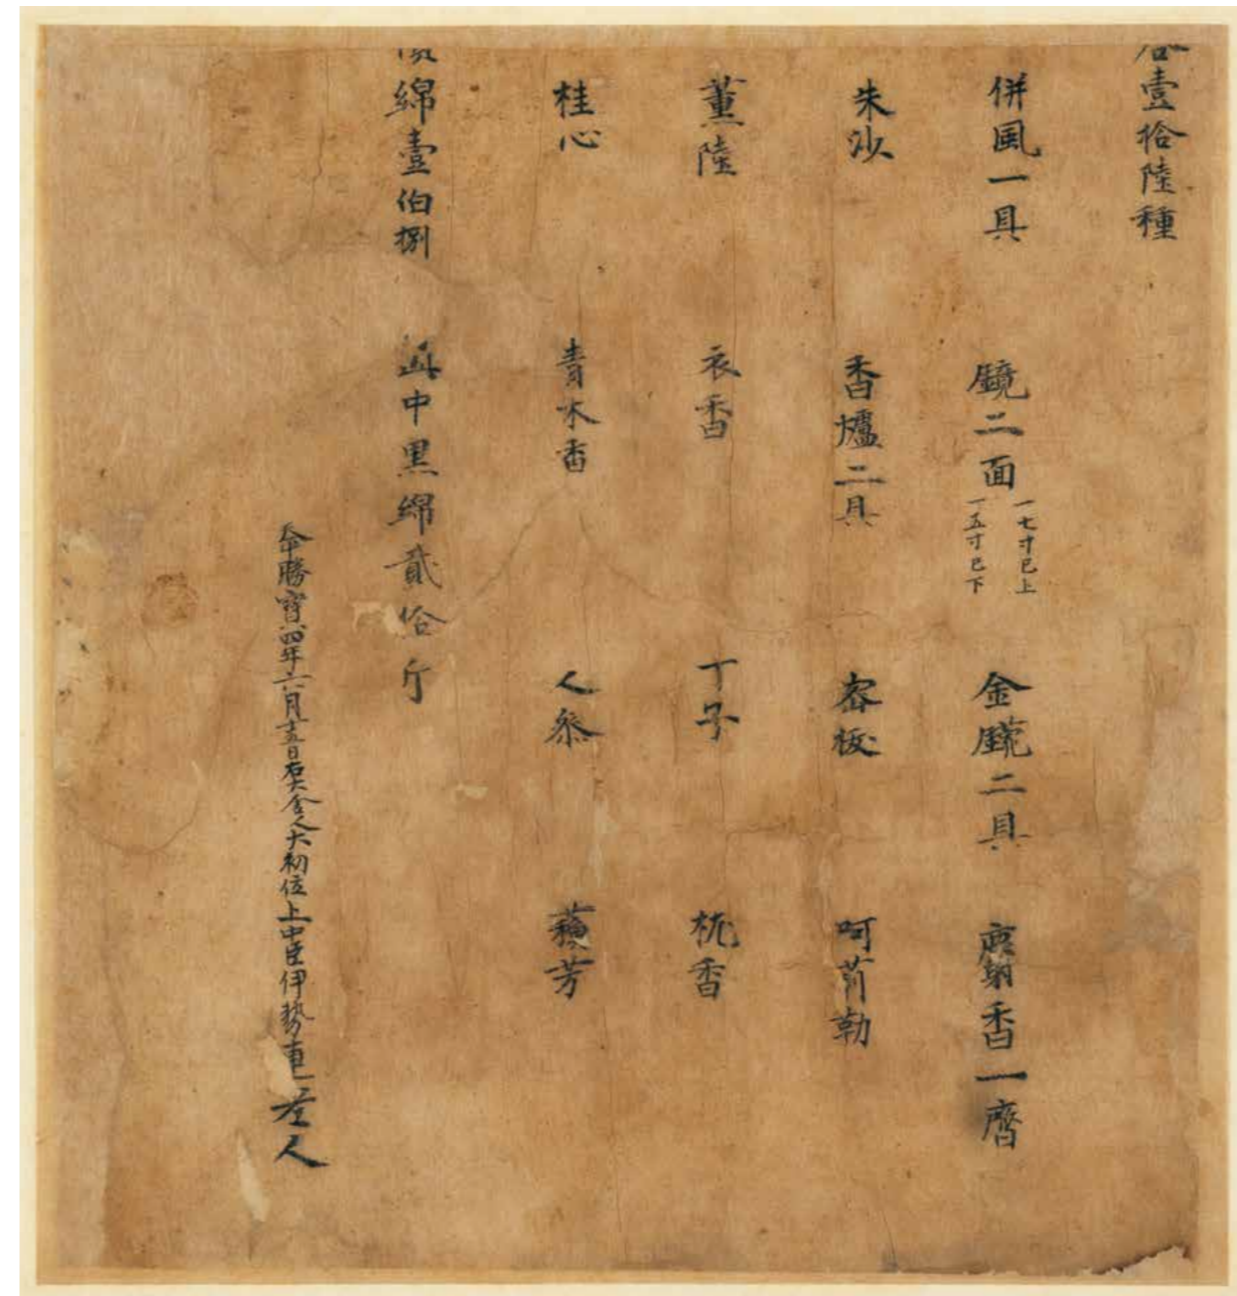 合壹拾陸種
併風一具 鏡二面 一七寸已上
一五寸已下 金鋺二具 麝香一齊
朱沙 香爐二具 密拔 呵莉勒
薫陸 衣香 丁子 枕香
桂心 青木香 人参 蘇芳
綿壹伯捌 中黒綿貳拾斤
天平勝寶四年六月十五日右大舎人大初位上中臣伊勢連老人